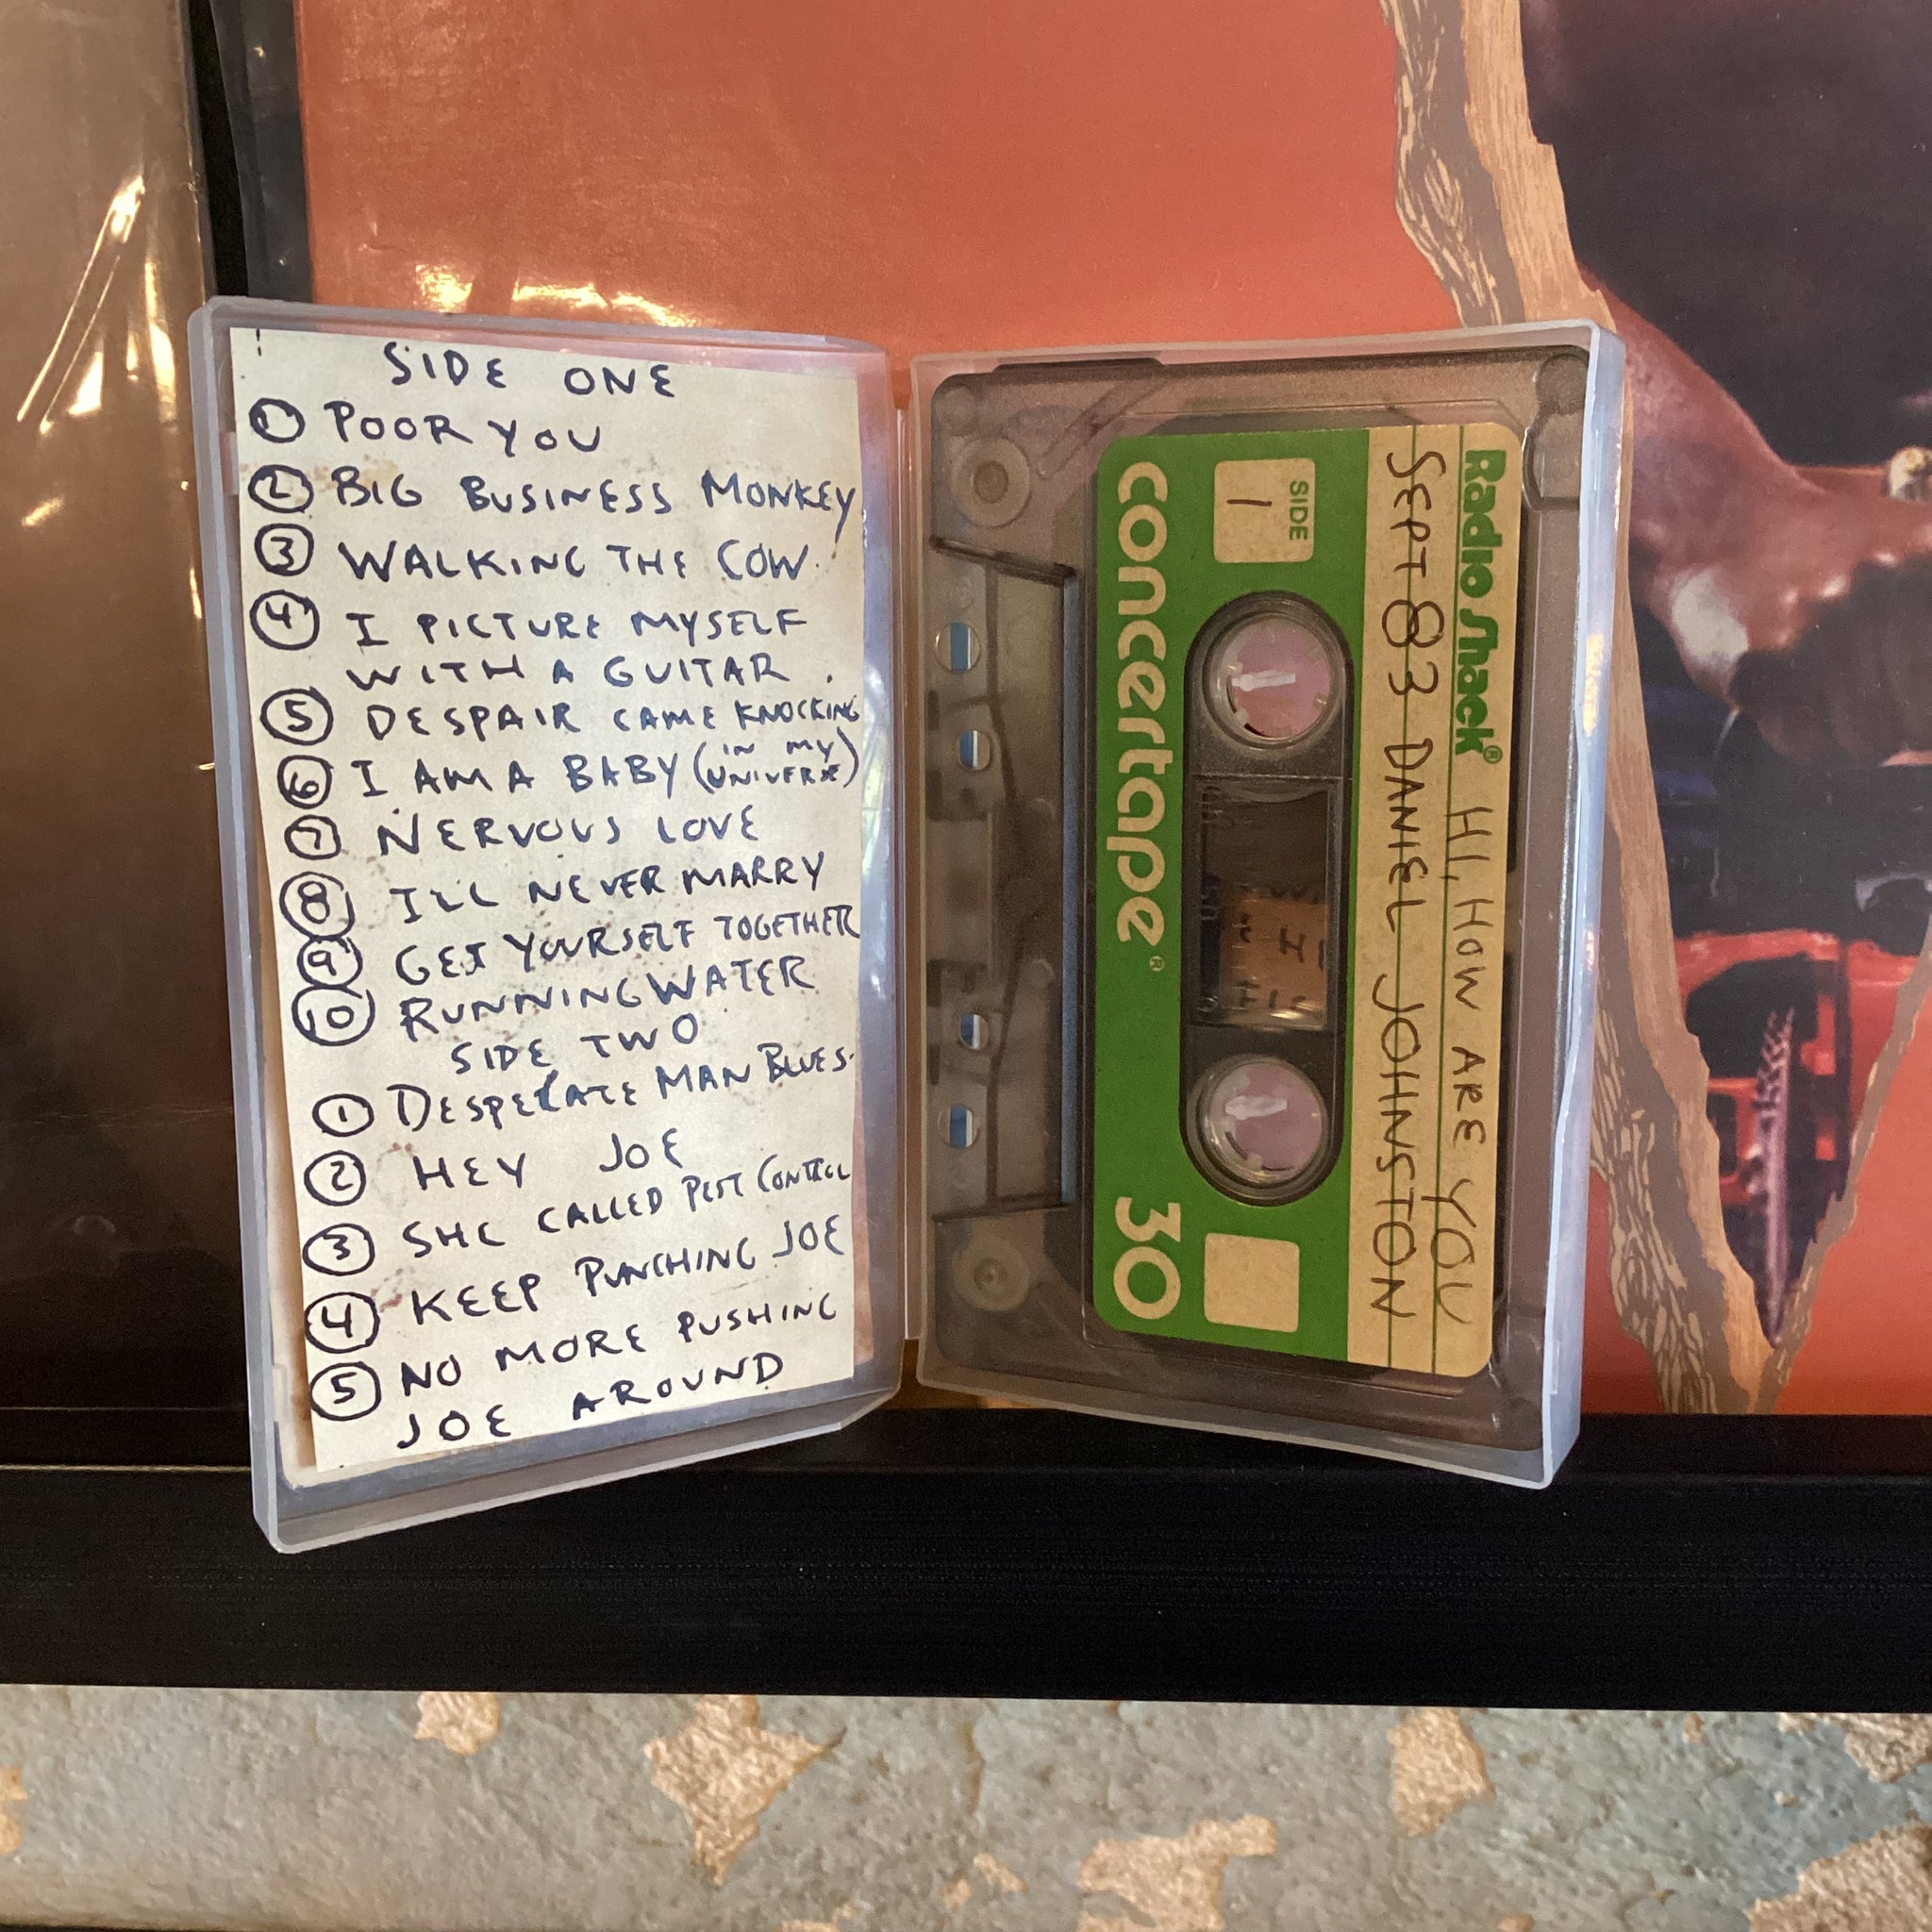 SIDE ONE
1 POOR YOU
2 BIG BUSINESS MONKEY
3 WALKING THE COW
4 I PICTURE MYSELF
WITH A GUITAR
5 DESPAIR CAME KNOCKING
6 I AM A BABY (IN MY UNIVERSE)
7 NERVOUS LOVE
8 I'LL NEVER MARRY
9 GET YOURSELF TOGETHER
10 RUNNING WATER
SIDE TWO
1 DESPERATE MAN BLUES
2 HEY JOE
3 SHE CALLED PEST CONTROL
4 KEEP PUNCHING JOE
5 NO MORE PUSHING
JOE AROUND
Radio Shack® HI, HOW ARE YOU
SEPT 83 DANIEL JOHNSTON
SIDE
1
concertape® 30